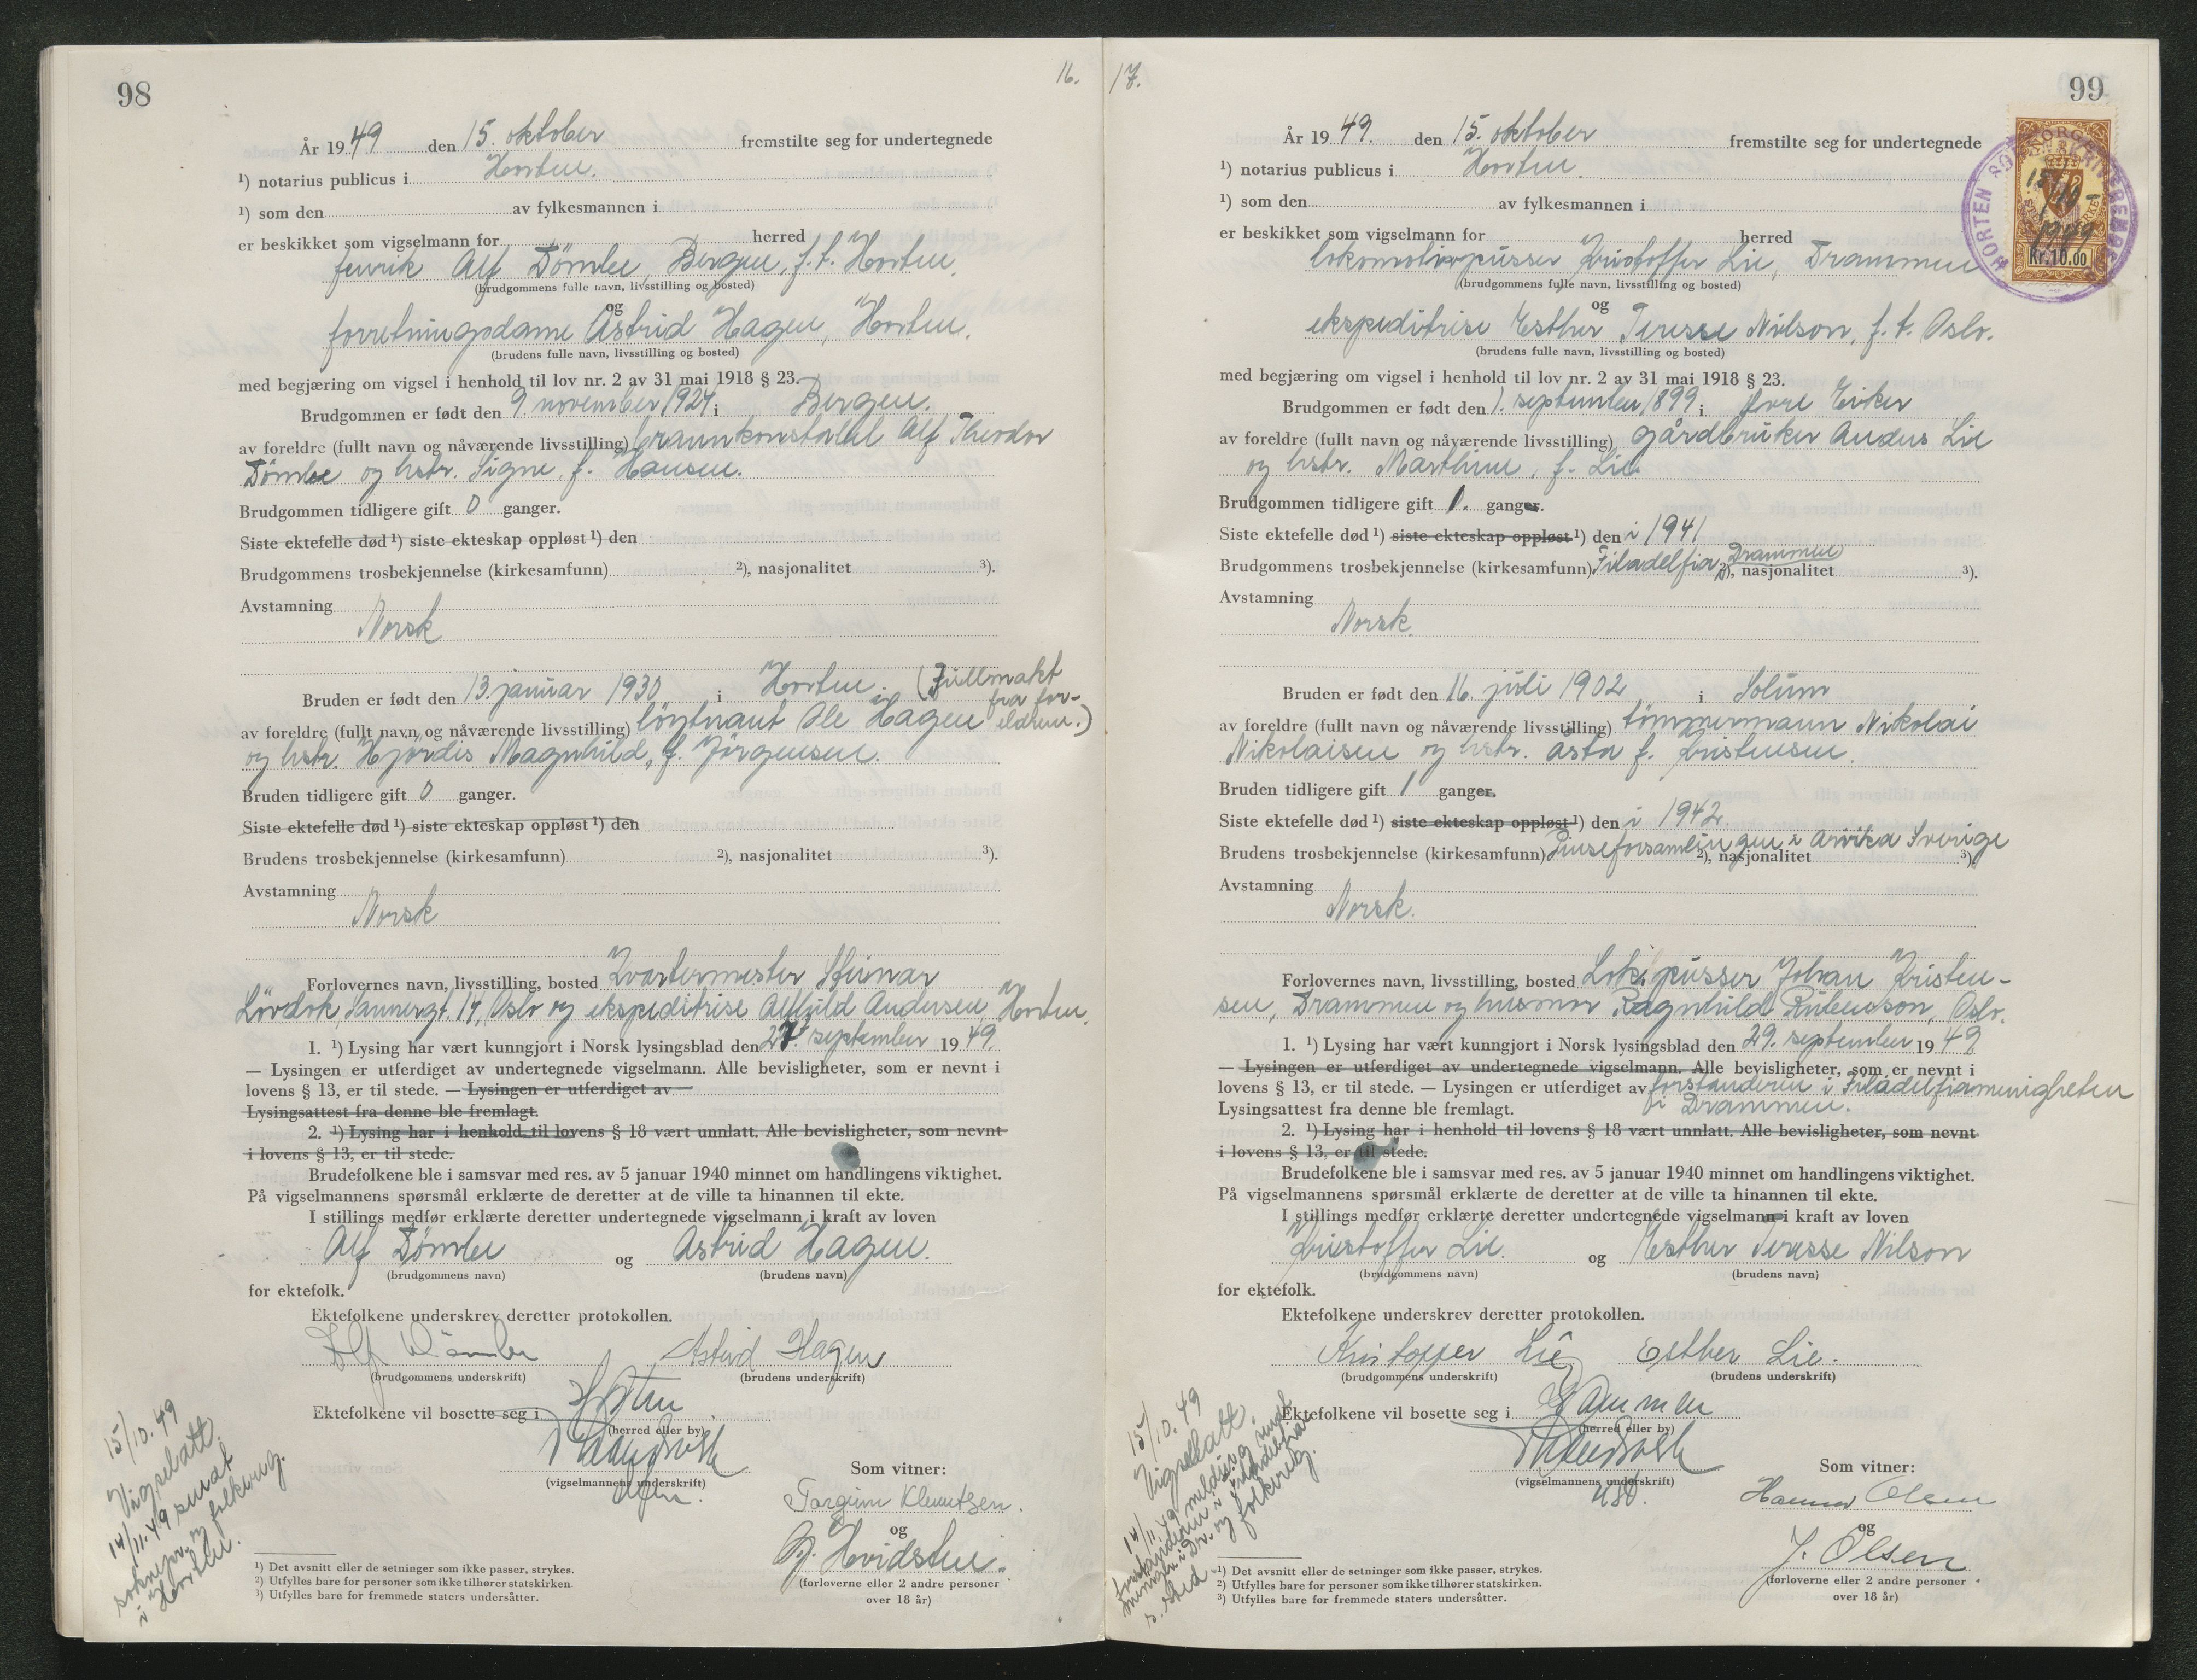 98
16.
År 1949 den 15. oktober fremstilte seg for undertegnede
¹) notarius publicus i Horten.
¹) som den av fylkesmannen i
er beskikket som vigselmann for herred
fenrik Alf Dömbe, Bergen, f.t. Horten.
(brudgommens fulle navn, livsstilling og bosted)
og
forretningsdame Astrid Hagen, Horten.
(brudens fulle navn, livsstilling og bosted)
med begjæring om vigsel i henhold til lov nr. 2 av 31 mai 1918 § 23.
Brudgommen er født den 9. november 1924 i Bergen.
av foreldre (fullt navn og nåværende livsstilling) brannkonstabel Alf Theodor
Dömbe og hstr. Signe, f. Hansen.
Brudgommen tidligere gift 0 ganger.
Siste ektefelle død ¹) siste ekteskap oppløst ¹) den
Brudgommens trosbekjennelse (kirkesamfunn) ²), nasjonalitet ³).
Avstamning
Norsk
Bruden er født den 13. januar 1930 i Horten. (Fullmakt
fra for-
av foreldre (fullt navn og nåværende livsstilling) löytnant Ole Hagen eldrene.)
og hstr. Hjördis Magnhild, f. Jörgensen.
Bruden tidligere gift 0 ganger.
Siste ektefelle død ¹) siste ekteskap oppløst ¹) den
Brudens trosbekjennelse (kirkesamfunn) ²), nasjonalitet ³).
Avstamning
Norsk
Forlovernes navn, livsstilling, bosted Kvartermester Steinar
Lövdok, Sannergt. 14, Oslo og ekspeditrise Alfhild Andersen, Horten.
1. ¹) Lysing har vært kunngjort i Norsk lysingsblad den 27. september 1949.
— Lysingen er utferdiget av undertegnede vigselmann. Alle bevisligheter, som er nevnt i
lovens § 13, er til stede. — Lysingen er utferdiget av
Lysingsattest fra denne ble fremlagt.
2. ¹) Lysing har i henhold til lovens § 18 vært unnlatt. Alle bevisligheter, som nevnt
i lovens § 13, er til stede.
Brudefolkene ble i samsvar med res. av 5 januar 1940 minnet om handlingens viktighet.
På vigselmannens spørsmål erklærte de deretter at de ville ta hinannen til ekte.
I stillings medfør erklærte deretter undertegnede vigselmann i kraft av loven
Alf Dömbe og Astrid Hagen.
(brudgommens navn) (brudens navn)
for ektefolk.
Ektefolkene underskrev deretter protokollen.
Alf Dömbe Astrid Hagen
(brudgommens underskrift) (brudens underskrift)
Ektefolkene vil bosette seg i Horten
(herred eller by)
(vigselmannens underskrift)
Som vitner:
Torgunn Klemetsen.
og
Hvidsten.
(forloverne eller 2 andre personer
over 18 år)
15/10.49
Vigselatt.
14/11.49 sendt
soknepr. og folkereg.
i Horten.
¹) Det avsnitt eller de setninger som ikke passer, strykes.
²) Utfylles bare for personer som ikke tilhører statskirken.
³) Utfylles bare for fremmede staters undersåtter.
17.
99
År 1949. den 15. oktober fremstilte seg for undertegnede
¹) notarius publicus i Horten.
¹) som den av fylkesmannen i
er beskikket som vigselmann for herred
lokomotivpusser Kristoffer Lie, Drammen
(brudgommens fulle navn, livsstilling og bosted)
og
ekspeditrise Esther Teresse Nilson, f.t. Oslo.
(brudens fulle navn, livsstilling og bosted)
HORTEN
NORGE
15/10-
1949
Kr.10.00
med begjæring om vigsel i henhold til lov nr. 2 av 31 mai 1918 § 23.
Brudgommen er født den 1. september 1899 i Øvre Eiker
av foreldre (fullt navn og nåværende livsstilling) gårdbruker Anders Lie
og hstr. Marthine, f. Lie
Brudgommen tidligere gift 1. ganger.
Siste ektefelle død ¹) siste ekteskap oppløst ¹) den i 1941
Brudgommens trosbekjennelse (kirkesamfunn) Filadelfia, Drammen ²), nasjonalitet ³).
Avstamning
Norsk.
Bruden er født den 16. juli 1902 i Solum
av foreldre (fullt navn og nåværende livsstilling) tömmermann Nikolai
Nikolaisen og hstr. Åsta f. Kristensen.
Bruden tidligere gift 1 ganger.
Siste ektefelle død ¹) siste ekteskap oppløst ¹) den i 1942.
Brudens trosbekjennelse (kirkesamfunn) Pinseforsamlingen i Arvika Sverige ²), nasjonalitet ³).
Avstamning
Norsk.
Forlovernes navn, livsstilling, bosted Lok.pusser Johan Kristen-
sen, Drammen og husmor Ragnhild Rubenson, Oslo.
1. ¹) Lysing har vært kunngjort i Norsk lysingsblad den 29. september 1949
— Lysingen er utferdiget av undertegnede vigselmann. Alle bevisligheter, som er nevnt i
lovens § 13, er til stede. — Lysingen er utferdiget av forstanderen i Filadelfiamenigheten
i Drammen.
Lysingsattest fra denne ble fremlagt.
2. ¹) Lysing har i henhold til lovens § 18 vært unnlatt. Alle bevisligheter, som nevnt
i lovens § 13, er til stede.
Brudefolkene ble i samsvar med res. av 5 januar 1940 minnet om handlingens viktighet.
På vigselmannens spørsmål erklærte de deretter at de ville ta hinannen til ekte.
I stillings medfør erklærte deretter undertegnede vigselmann i kraft av loven
Kristoffer Lie. og Esther Teresse Nilson
(brudgommens navn) (brudens navn)
for ektefolk.
Ektefolkene underskrev deretter protokollen.
Kristoffer Lie Esther Lie.
(brudgommens underskrift) (brudens underskrift)
Ektefolkene vil bosette seg i Drammen
(herred eller by)
(vigselmannens underskrift)
Som vitner:
Hanna Olsen
og
J. Olsen
(forloverne eller 2 andre personer
over 18 år)
15/10.49
Vigselatt.
14/11.49 melding sendt
forstanderen i Filadelfia
menigh. i Dr. og folkereg.
s. sted
¹) Det avsnitt eller de setninger som ikke passer, strykes.
²) Utfylles bare for personer som ikke tilhører statskirken.
³) Utfylles bare for fremmede staters undersåtter.